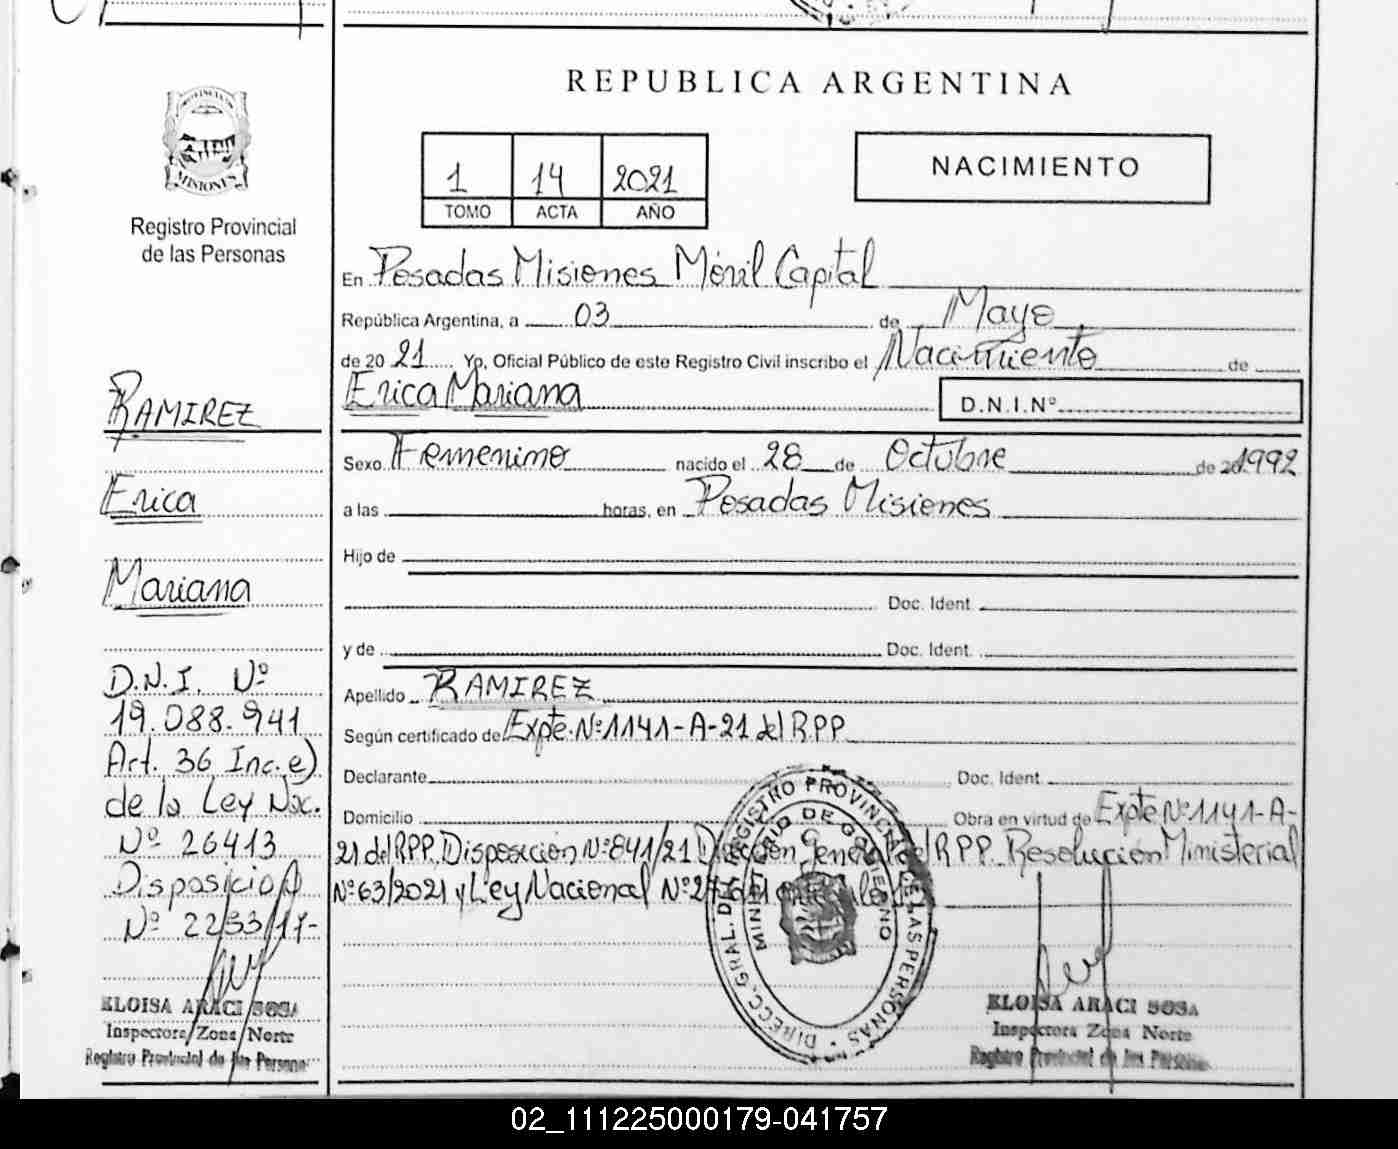 REPUBLICA ARGENTINA
PROVINCIA DE
MISIONES
Registro Provincial
de las Personas
1 14 2021
TOMO ACTA AÑO
NACIMIENTO
En Posadas Misiones Móvil Capital
República Argentina, a 03 de Mayo
de 20 21 Yo, Oficial Público de este Registro Civil inscribo el Nacimiento de
Erica Mariana D.N.I.Nº
Sexo Femenino nacido el 28 de Octubre de 20 1992
a las horas, en Posadas Misiones
Hijo de
Doc. Ident.
y de Doc. Ident.
Apellido RAMIREZ
Según certificado de Expte. Nº 1141-A-21 del RPP
Declarante Doc. Ident.
Domicilio Obra en virtud de Expte Nº 1141-A-
21 del RPP. Disposición Nº 841/21 Dirección General del RPP. Resolución Ministerial
Nº 63/2021 y Ley Nacional Nº
DIRECC. GRAL. DEL REGISTRO PROVINCIAL DE LAS PERSONAS
MINISTERIO DE GOBIERNO
ELOISA ARACI SOSA
Inspectora Zona Norte
Registro Provincial de las Personas
RAMIREZ
Erica
Mariana
D.N.I. Nº
19.088.941
Art. 36 Inc. e)
de la Ley Nac.
Nº 26413
Disposición
Nº 2233/17-
ELOISA ARACI SOSA
Inspectora Zona Norte
Registro Provincial de las Personas
02_111225000179-041757